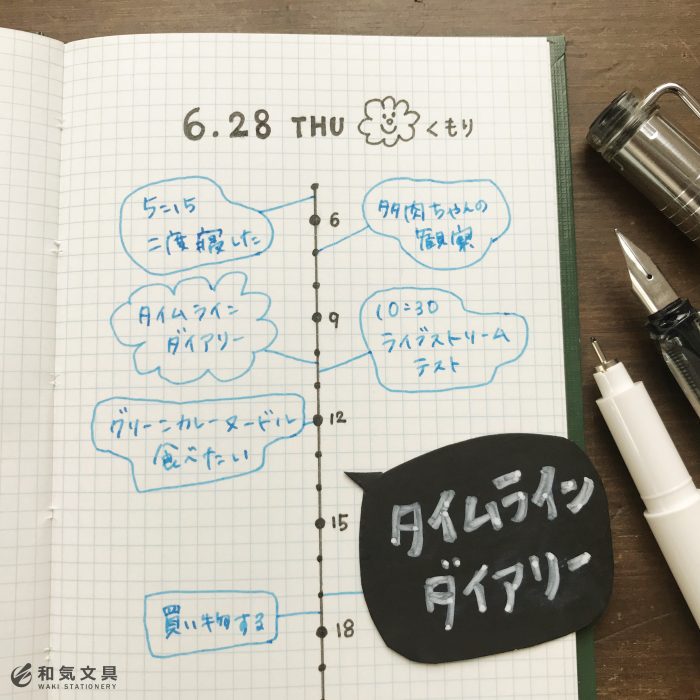 6.28 THU くもり
5:15
二度寝した
6
多肉ちゃんの
観察
タイムライン
ダイアリー
9
10:30
ライブストリーム
テスト
グリーンカレーヌードル
食べたい
12
15
タイムライン
ダイアリー
買い物する
18
和気文具
WAKI STATIONERY